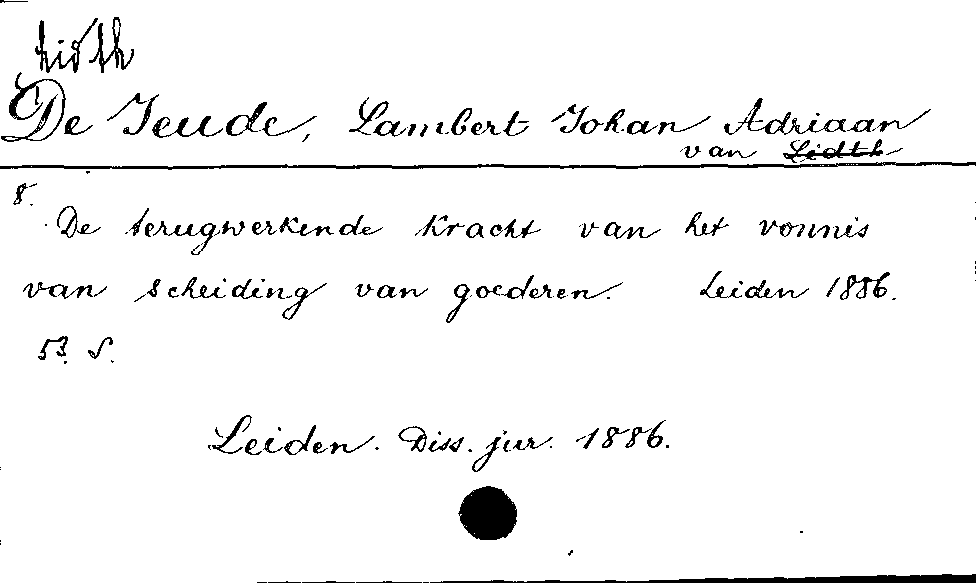 Lidth
De Jeude, Lambert Johan Adriaan
van Lidth
8.
De terugwerkende kracht van het vonnis
van scheiding van goederen. Leiden 1886.
53. S.
Leiden. Diss. jur. 1886.